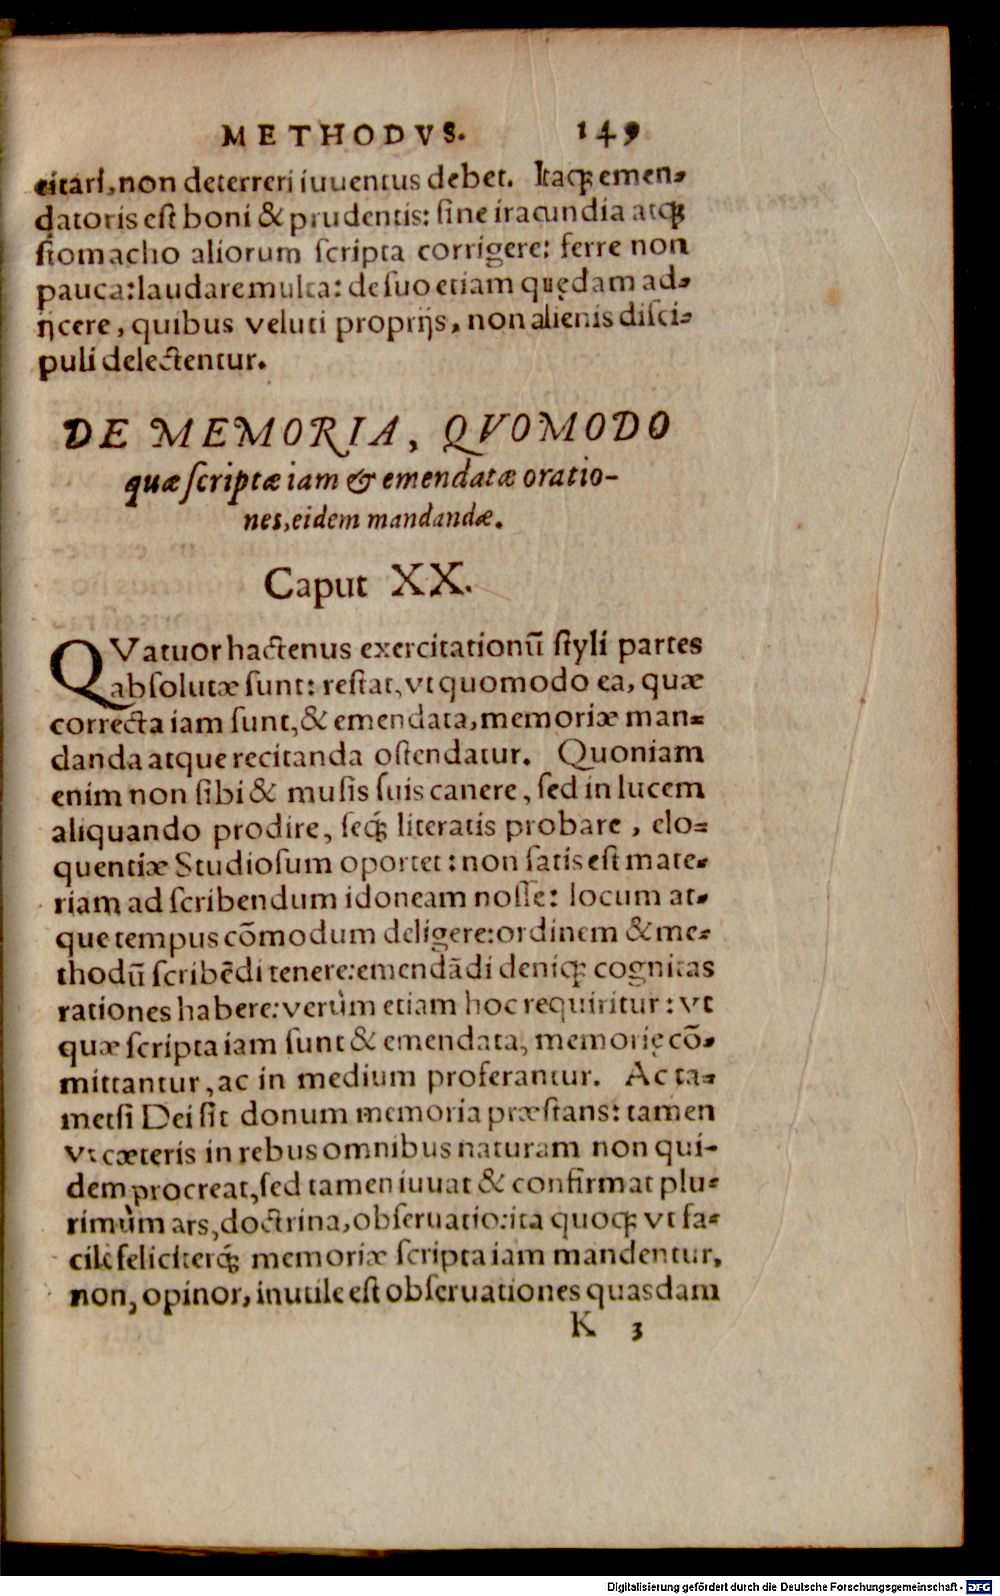 METHODVS. 149
citari, non deterreri iuuentus debet. Itaq; emen-
datoris est boni & prudentis: sine iracundia atq;
stomacho aliorum scripta corrigere: ferre non
pauca: laudare multa: de suo etiam quędam ad-
ijcere, quibus veluti proprijs, non alienis disci-
puli delectentur.
DE MEMORIA, QVOMODO
quæ scriptæ iam & emendatæ oratio-
nes, eidem mandandæ.
Caput XX.
QVatuor hactenus exercitationū styli partes
absolutæ sunt: restat, vt quomodo ea, quæ
correcta iam sunt, & emendata, memoriæ man-
danda atque recitanda ostendatur. Quoniam
enim non sibi & musis suis canere, sed in lucem
aliquando prodire, seq; literatis probare, elo-
quentiæ Studiosum oportet: non satis est mate-
riam ad scribendum idoneam nosse: locum at-
que tempus cōmodum deligere: ordinem & me-
thodū scribēdi tenere: emendādi deniq; cognitas
rationes habere: verùm etiam hoc requiritur: vt
quæ scripta iam sunt & emendata, memorię cō-
mittantur, ac in medium proferantur. Ac ta-
metsi Dei sit donum memoria præstans: tamen
vt cæteris in rebus omnibus naturam non qui-
dem procreat, sed tamen iuuat & confirmat plu-
rimùm ars, doctrina, obseruatio: ita quoq; vt fa-
cilè feliciterq; memoriæ scripta iam mandentur,
non, opinor, inutile est obseruationes quasdam
K 3
Digitalisierung gefördert durch die Deutsche Forschungsgemeinschaft - DFG